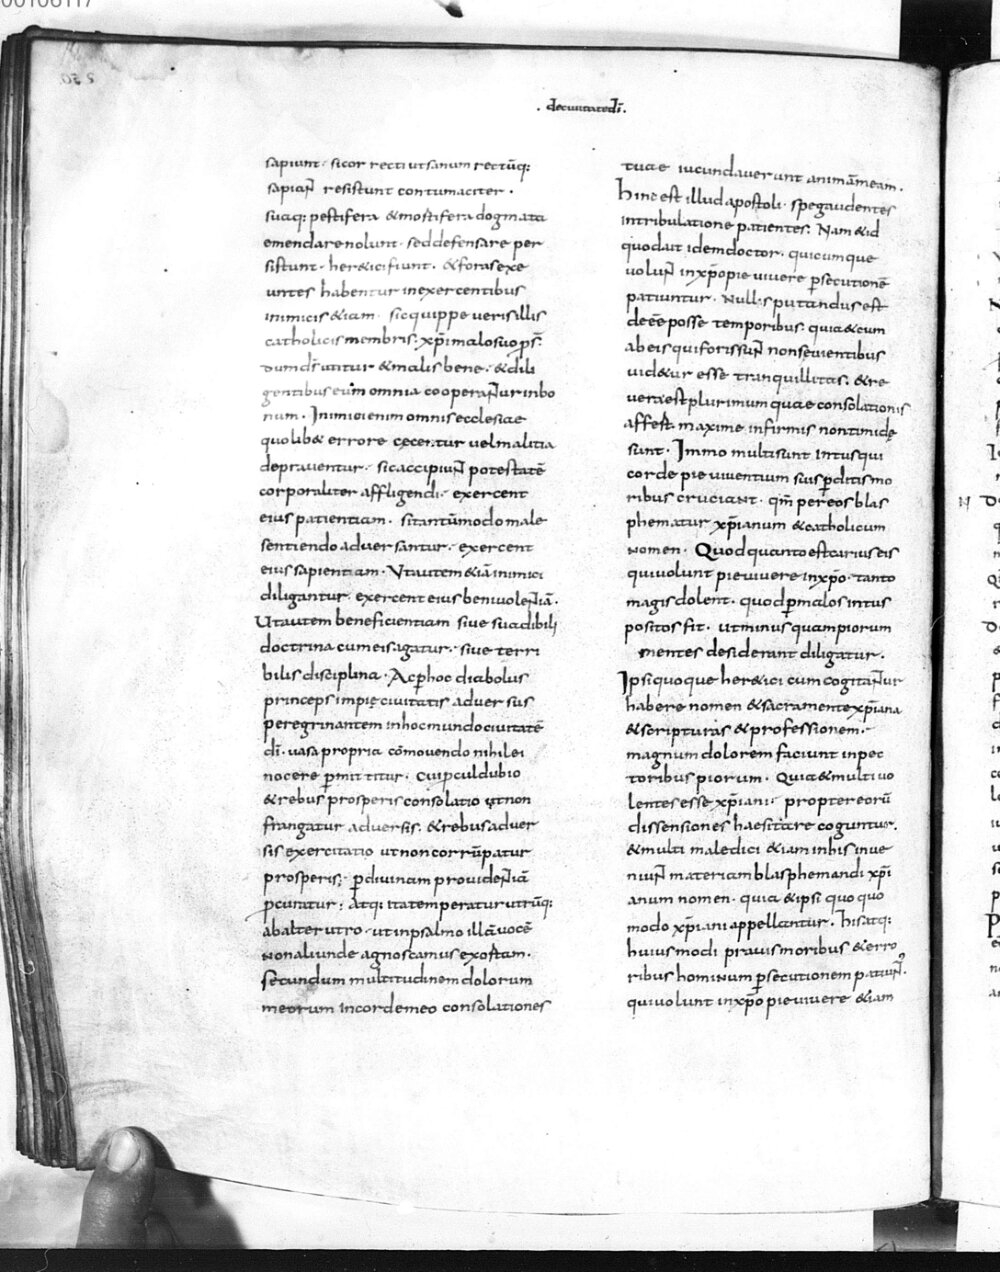 00106117
· de ciuitate dī ·
sapiunt · si correcti ut sanum rectūq;
sapiant resistunt contumaciter ·
suaq; pestifera & mostifera dogmata
emendare nolunt · sed defensare per
sistunt · heretici fiunt · & foras exe
untes habentur in exercentibus
inimicis &iam · sic quippe ueris illis
catholicis membris xp̄i malo suo p̄s̄ ·
dum d̄s utitur & malis bene · & dili
gentibus eum omnia cooperantur in bo
num · Inimici enim omnis ecclesiae
quolib& errore cecentur uel malitia
deprauentur · si accipiunt potestatē
corporaliter affligendi · exercent
eius patientiam · si tantūmodo male
sentiendo aduersantur · exercent
eius sapientiam · Ut autem &iā inimici
diligantur exercent eius beniuolentiā ·
Ut autem beneficientiam siue suadibili
doctrina cum eis agatur · siue terri
bilis disciplina · Ac p hoc diabolus
princeps impię ciuitatis aduersus
peregrinantem in hoc mundo ciuitatē
dī · uasa propria cōmouendo nihil ei
nocere pmittitur · Cui pcul dubio
& rebus prosperis consolatio ut non
frangatur aduersis · & rebus aduer
sis exercitatio ut non corrūpatur
prosperis · p diuinam prouidentiā
pcuratur · atq; ita temperatur utrūq;
ab alterutro · ut in psalmo illā uocē
non aliunde agnoscamus exortam ·
secundum multitudinem dolorum
meorum in corde meo consolationes
tuae iucundauerunt animā meam ·
Hinc est illud apostoli · spe gaudentes
in tribulatione patientes · Nam & id
quod ait idem doctor · quicumque
uolunt in xp̄o pie uiuere psecutionē
patiuntur · Nullis putandus est
deeē posse temporibus · quia & cum
ab eis qui foris sunt non seuientibus
uid&ur esse tranquillitas · & re
uera est plurimum quae consolationis
affert maxime infirmis non timide
sunt · Immo multi sunt intus qui
corde pie uiuentium suis pditis mo
ribus cruciant · qm̄ per eos blas
phematur xp̄ianum & catholicum
nomen · Quod quanto est carius eis
qui uolunt pie uiuere in xp̄o · tanto
magis dolent · quod p malos intus
positos fit · ut minus quam piorum
mentes desiderant diligatur ·
Ipsi quoque her&ici cum cogitantur
habere nomen & sacramente xp̄iana
& scripturas & professionem ·
magnum dolorem faciunt in pec
toribus piorum · Quia & multi uo
lentes esse xp̄iani · propter eorū
dissensiones haesitare coguntur ·
& multi maledici &iam in his inue
niunt materiam blasphemandi xp̄i
anum nomen · quia & ipsi quo quo
modo xp̄iani appellantur · his atq;
huiusmodi prauis moribus & erro
ribus hominum psecutionem patiunt ·
qui uolunt in xp̄o pie uiuere &iam